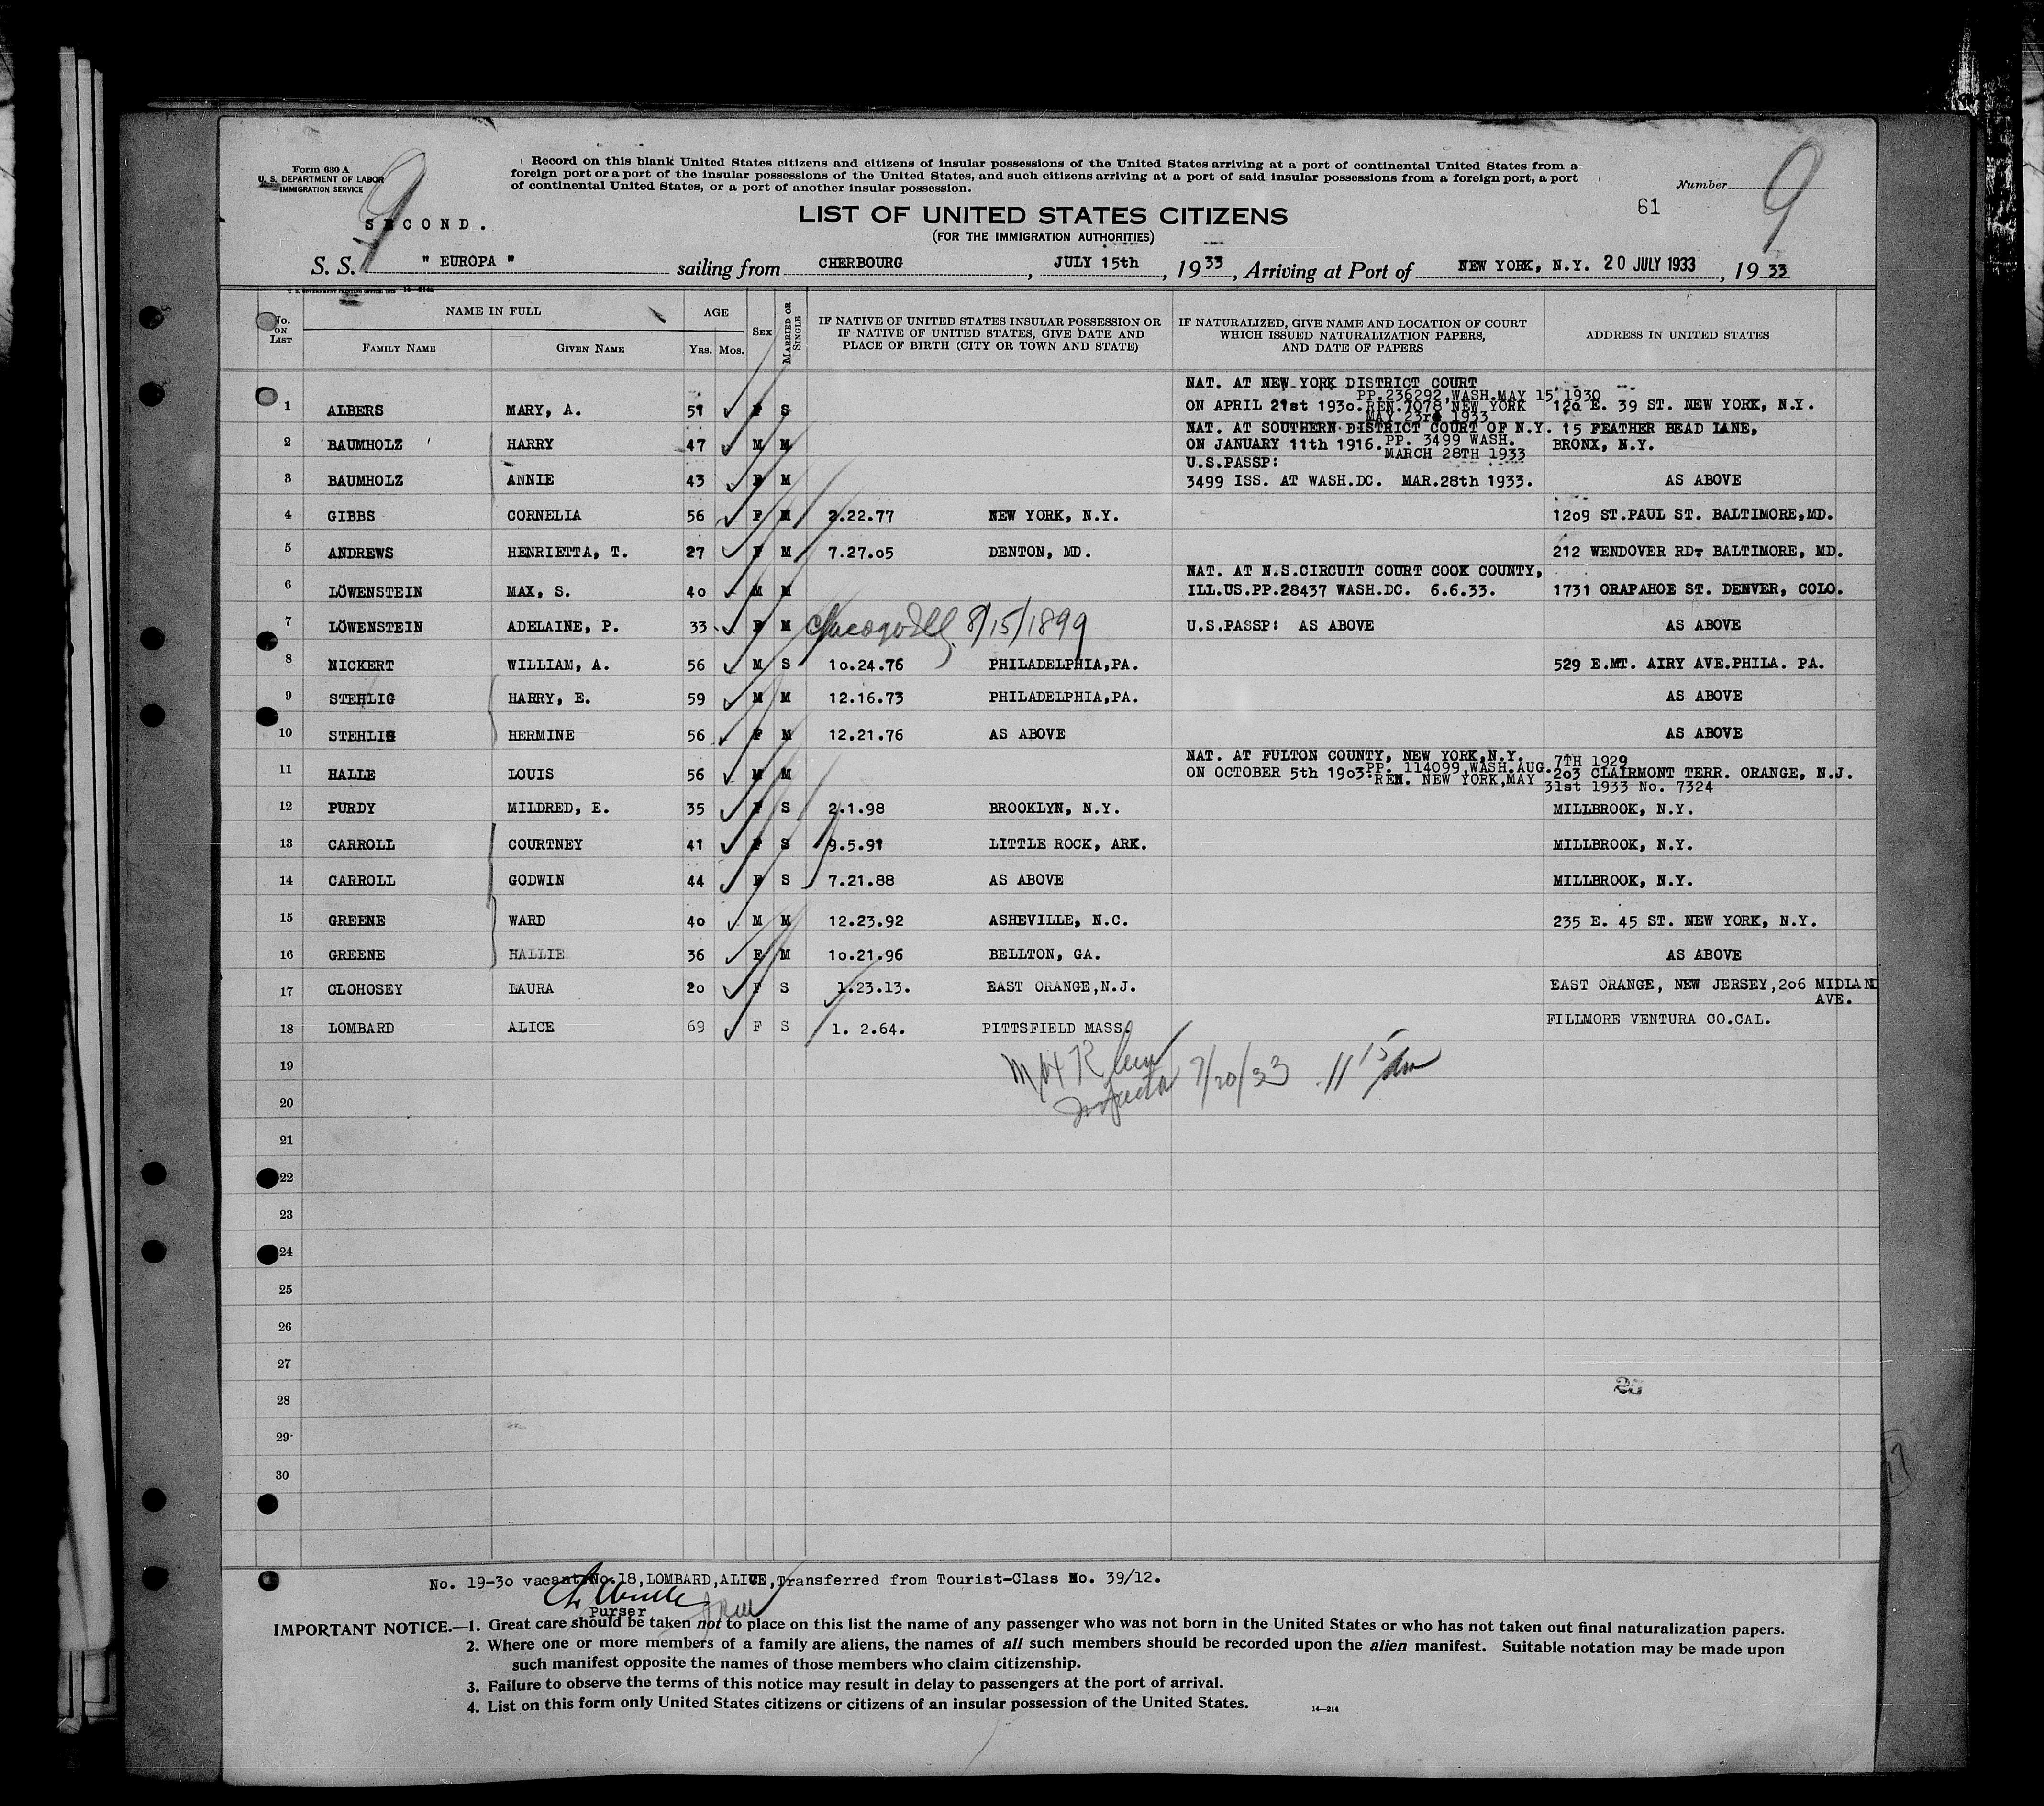 Form 630 A
U. S. DEPARTMENT OF LABOR
IMMIGRATION SERVICE
Record on this blank United States citizens and citizens of insular possessions of the United States arriving at a port of continental United States from a
foreign port or a port of the insular possessions of the United States, and such citizens arriving at a port of said insular possessions from a foreign port, a port
of continental United States, or a port of another insular possession.
Number 9
9
61
SECOND.
LIST OF UNITED STATES CITIZENS
(FOR THE IMMIGRATION AUTHORITIES)
S. S. " EUROPA " sailing from CHERBOURG, JULY 15th, 1933, Arriving at Port of NEW YORK, N.Y. 20 JULY 1933, 1933
No. ON LIST
NAME IN FULL
FAMILY NAME GIVEN NAME
AGE
Yrs. Mos.
SEX
MARRIED OR SINGLE
IF NATIVE OF UNITED STATES INSULAR POSSESSION OR
IF NATIVE OF UNITED STATES, GIVE DATE AND
PLACE OF BIRTH (CITY OR TOWN AND STATE)
IF NATURALIZED, GIVE NAME AND LOCATION OF COURT
WHICH ISSUED NATURALIZATION PAPERS,
AND DATE OF PAPERS
ADDRESS IN UNITED STATES
NAT. AT NEW YORK DISTRICT COURT
PP.236292,WASH.MAY 15 1930
1 ALBERS MARY, A. 51 F S ON APRIL 21st 1930. REN.7078 NEW YORK 120 E. 39 ST. NEW YORK, N.Y.
MAY 23rd 1933
NAT. AT SOUTHERN DISTRICT COURT OF N.Y. 15 FEATHER BEAD LANE,
2 BAUMHOLZ HARRY 47 M M ON JANUARY 11th 1916. PP. 3499 WASH. BRONX, N.Y.
MARCH 28TH 1933
U.S.PASSP:
3 BAUMHOLZ ANNIE 43 F M 3499 ISS. AT WASH.DC. MAR.28th 1933. AS ABOVE
4 GIBBS CORNELIA 56 F M 2.22.77 NEW YORK, N.Y. 1209 ST.PAUL ST. BALTIMORE,MD.
5 ANDREWS HENRIETTA, T. 27 F M 7.27.05 DENTON, MD. 212 WENDOVER RD. BALTIMORE, MD.
NAT. AT N.S.CIRCUIT COURT COOK COUNTY,
6 LÖWENSTEIN MAX, S. 40 M M ILL.US.PP.28437 WASH.DC. 6.6.33. 1731 ORAPAHOE ST. DENVER, COLO.
7 LÖWENSTEIN ADELAINE, P. 33 F M Chicago Ill. 8/15/1899 U.S.PASSP: AS ABOVE AS ABOVE
8 NICKERT WILLIAM, A. 56 M S 10.24.76 PHILADELPHIA,PA. 529 E.MT. AIRY AVE.PHILA. PA.
9 STEHLIG HARRY, E. 59 M M 12.16.73 PHILADELPHIA,PA. AS ABOVE
10 STEHLIG HERMINE 56 F M 12.21.76 AS ABOVE AS ABOVE
NAT. AT FULTON COUNTY, NEW YORK,N.Y.
PP. 114099,WASH.AUG. 7TH 1929
11 HALLE LOUIS 56 M M ON OCTOBER 5th 1903. 203 CLAIRMONT TERR. ORANGE, N.J.
REN. NEW YORK,MAY 31st 1933 No. 7324
12 PURDY MILDRED, E. 35 F S 2.1.98 BROOKLYN, N.Y. MILLBROOK, N.Y.
13 CARROLL COURTNEY 41 F S 9.5.91 LITTLE ROCK, ARK. MILLBROOK, N.Y.
14 CARROLL GODWIN 44 F S 7.21.88 AS ABOVE MILLBROOK, N.Y.
15 GREENE WARD 40 M M 12.23.92 ASHEVILLE, N.C. 235 E. 45 ST. NEW YORK, N.Y.
16 GREENE HALLIE 36 F M 10.21.96 BELLTON, GA. AS ABOVE
17 CLOHOSEY LAURA 20 F S 1.23.13. EAST ORANGE,N.J. EAST ORANGE, NEW JERSEY,206 MIDLAND
AVE.
18 LOMBARD ALICE 69 F S 1. 2.64. PITTSFIELD MASS. FILLMORE VENTURA CO.CAL.
19
Inspector 7/20/33 11 15 am
20
21
22
23
24
25
26
27
28
29
30
No. 19-30 vacant. No.18,LOMBARD,ALICE,Transferred from Tourist-Class No. 39/12.
Purser
IMPORTANT NOTICE.—1. Great care should be taken not to place on this list the name of any passenger who was not born in the United States or who has not taken out final naturalization papers.
2. Where one or more members of a family are aliens, the names of all such members should be recorded upon the alien manifest. Suitable notation may be made upon
such manifest opposite the names of those members who claim citizenship.
3. Failure to observe the terms of this notice may result in delay to passengers at the port of arrival.
4. List on this form only United States citizens or citizens of an insular possession of the United States.
14—214